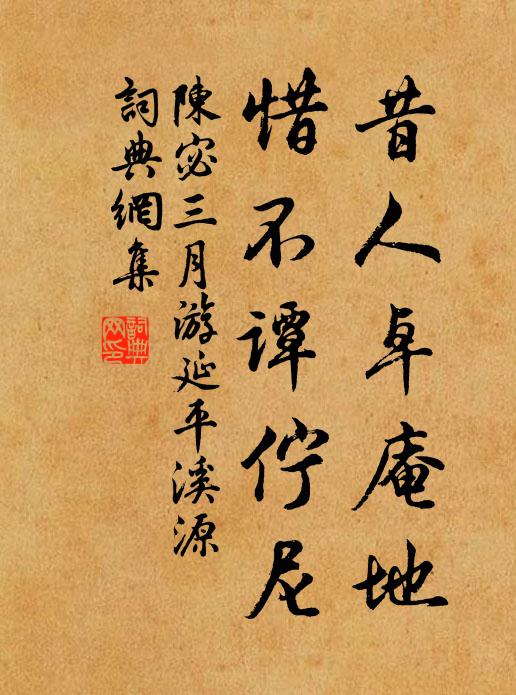 昔人卓庵地
惜不譚佇尼
陳宓三月游延平溪源
詞典網集
詞典網印